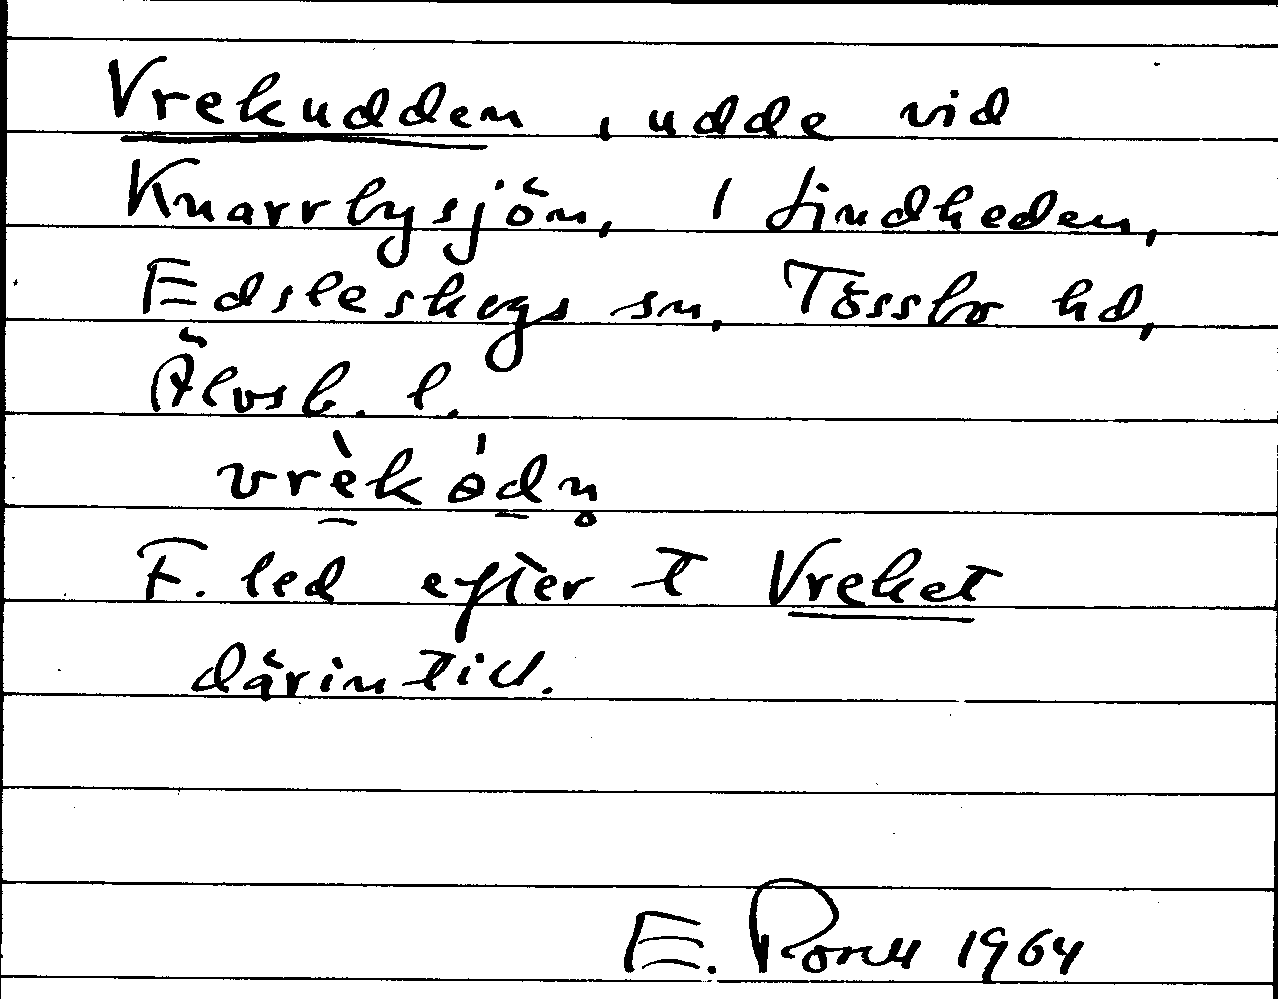 Vrekudden, udde vid
Knarrbysjön, 1 Lindheden,
Edsleskogs sn, Tössbo hd,
Älvsb. l.
vrèkódn̥
F. led efter t Vreket
därintill.
E. 1964